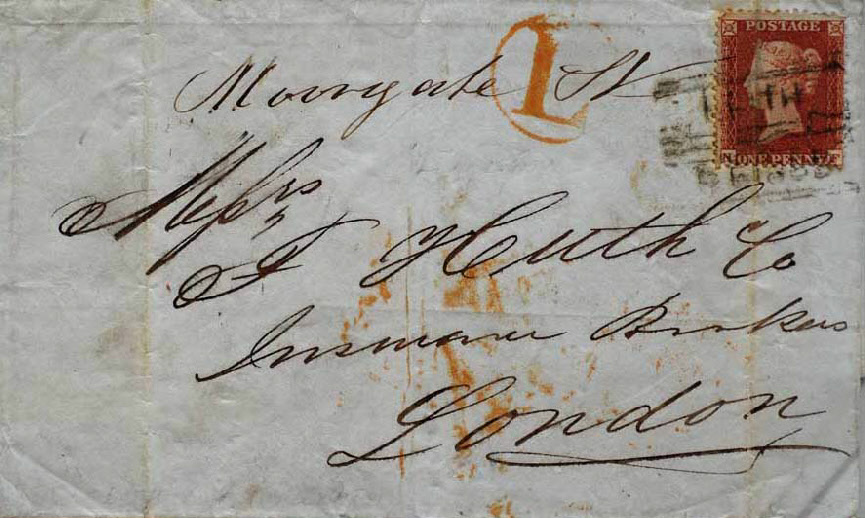 POSTAGE
ONE PENNY
N F
1
Moorgate St
Messrs
F Huth Co
Insurance Brokers
London